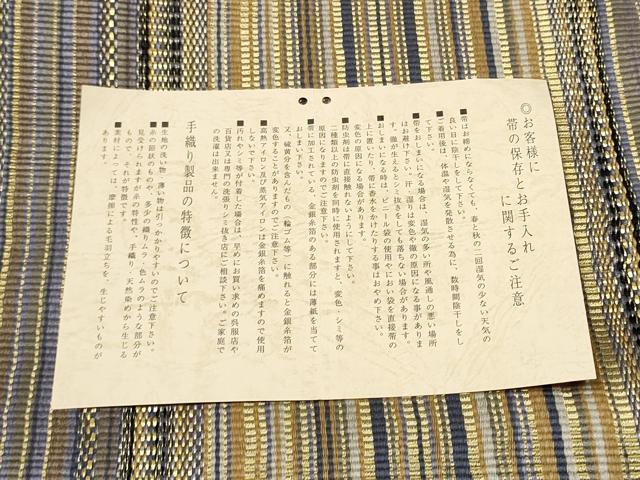 ◎お客様に
帯の保存とお手入れ
に関するご注意
■帯はお締めにならなくても、春と秋の二回湿気の少ない天気の
良い日に陰干しをして下さい。
■ご着用後は、体温や湿気を発散させる為に、数時間陰干しをし
て下さい。
■帯をおしまいになる場合は、湿気の多い所や風通しの悪い場所
はお避け下さい。汗・湿りは変色や黴の原因になる事がありま
す。黴が生えるとシミ抜きをしても落ちない場合があります。
■おしまいになる時は、ビニール袋の使用やにおい袋を直接帯の
上に置いたり、帯に香水をかけたりする事はおやめ下さい。
変色の原因になる場合があります。
■防虫剤は帯に直接触れないようにして下さい。
二種類以上の防虫剤を同時に使用されますと、変色・シミ等の
原因になりますのでご注意下さい。
■帯に加工されている、金銀糸箔のある部分には薄紙を当てて
おしまい下さい。
又、硫黄分を含んだもの(輪ゴム等)に触れると金銀糸箔が
変色することがありますのでご注意下さい。
■高熱アイロン及び蒸気アイロンは金銀糸箔を痛めますので使用
しないで下さい。
■汚れやシミが付着した場合は、早めにお買い求めの呉服店や
百貨店又は専門の洗張りシミ抜き店にご相談下さい。ご家庭で
の洗濯は出来ません。
手織り製品の特徴について
■生地の洗い物、薄い物は引っかかりやすいのでご注意下さい。
■糸の節状のものや、多少の織りムラ・色ムラのような部分が
見受けられますが糸の特性や、手織り・天然染めから生じる
もので、それが特徴です。
■素材によっては、摩擦による毛羽立ちを、生じやすいものが
あります。